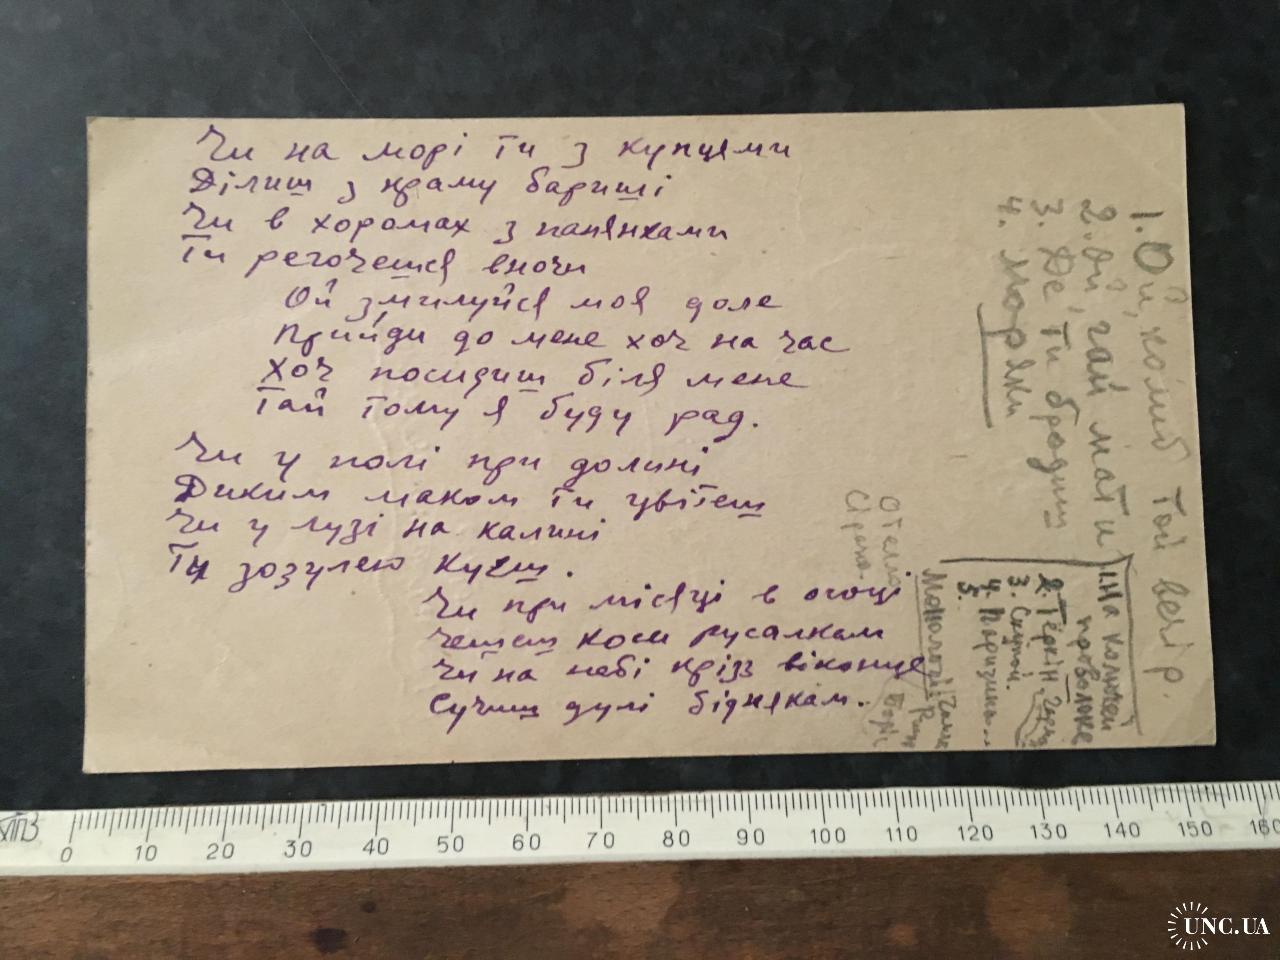 Чи на морі ти з купцями
Ділиш з краму бариші
Чи в хоромах з панянками
Ти регочешся вночи
Ой змилуйся моя доле
Прийди до мене хоч на час
Хоч посидиш біля мене
Тай тому я буду рад.
Чи у полі при долині
Диким маком ти цвітеш
Чи у лузі на калині
Ти зозулею куєш.
Чи при місяці в
чешеш коси русалкам
Чи на небі крізз віконце
Сучиш дулі біднякам.
1. Ой, коли б той вечір.
2. Ой, гай, мати
3. Де ти бродиш
4. Моряки
1. На колючей
проволоке
2. Тёркін
3. Скупой.
4. Паризина...
5.
Монологи
Отелло
Сірано.
0 10 20 30 40 50 60 70 80 90 100 110 120 130 140 150 160
UNC.UA